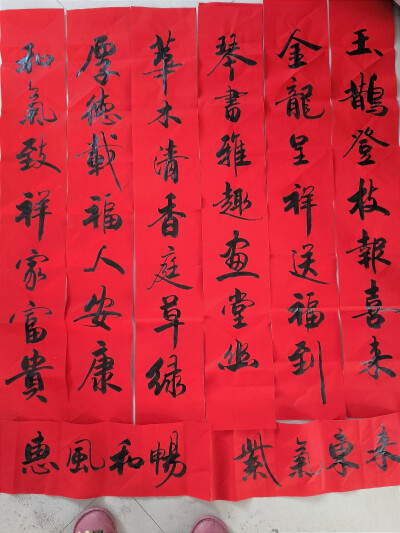 玉鵲登枝報喜来
金龍呈祥送福到
琴書雅趣画堂幽
華木清香庭草緑
厚德載福人安康
和氣致祥家富貴
惠風和暢
紫氣東来